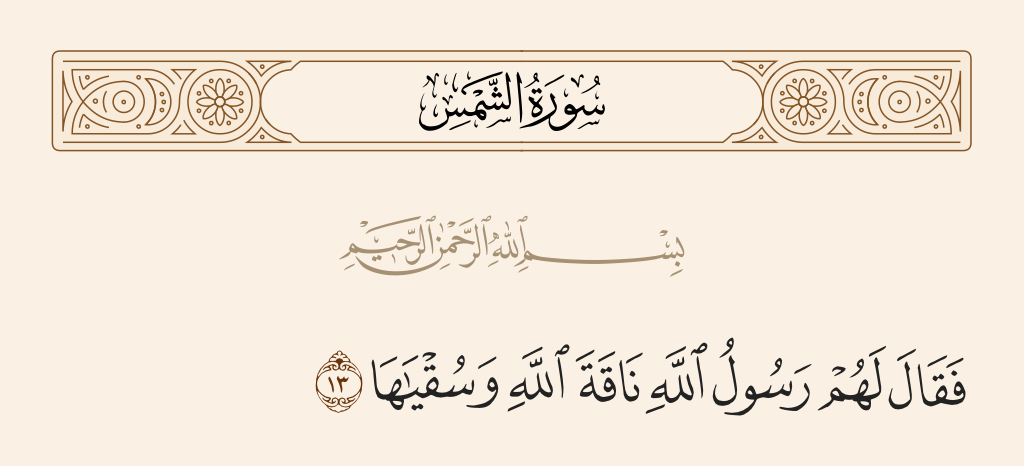 سُورَةُ الشَّمْسِ
بِسْمِ ٱللَّهِ ٱلرَّحْمَٰنِ ٱلرَّحِيمِ
فَقَالَ لَهُمْ رَسُولُ ٱللَّهِ نَاقَةَ ٱللَّهِ وَسُقْيَٰهَا ١٣